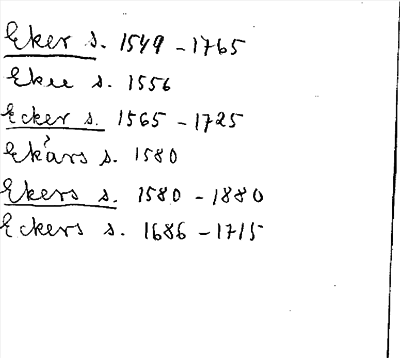 Eker s. 1549 - 1765
Ekee s. 1556
Ecker s. 1565 - 1725
Ekårs s. 1580
Ekers s. 1580 - 1880
Eckers s. 1686 - 1715